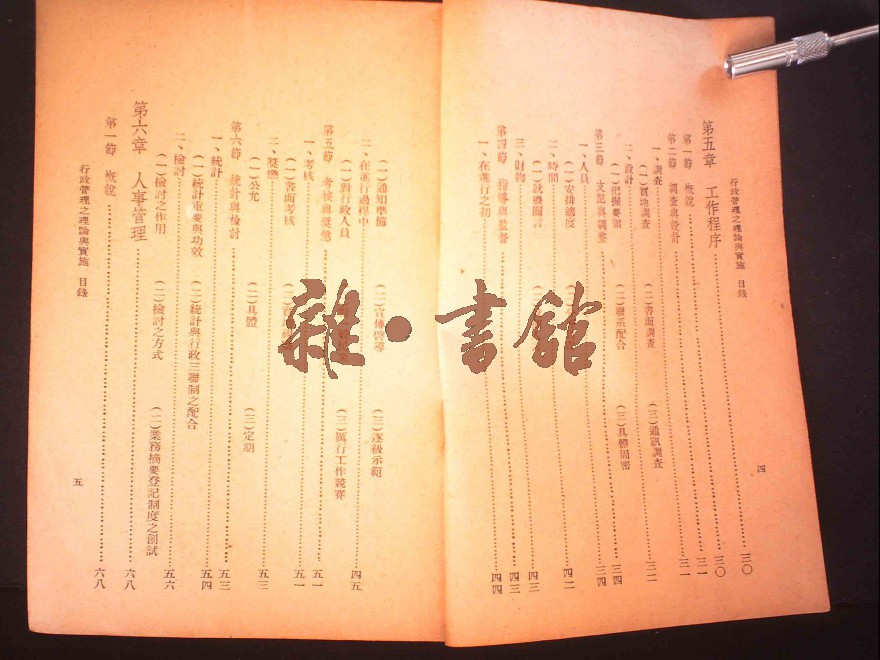 行政管理之理論與實施 目錄
四
第五章 工作程序……三〇
第一節 概說……三〇
第二節 調查與設計……三一
一、調查……三一
(一)實地調查 (二)書面調查 (三)通訊調查
二、設計……三二
(一)把握要領 (二)聯系配合 (三)具體周密
第三節 支配與調整……三四
一、人員……三四
(一)安排適度
二、時間……四二
(一)就
三、財物……四三
第四節 指導與監督……四四
一、在進行之初……四四
(一)通知準備 (二)宣傳啓導 (三)逐級示範
二、在進行過程中……四五
(一)對行政人員 (三)厲行工作競賽
第五節 考核與獎懲……五一
一、考核……五一
(一)書面考核
二、獎懲……五三
(一)公允 (二)具體 (三)定期
第六節 統計與檢討……五三
一、統計……五四
(一)統計重要與功效 (二)統計與行政三聯制之配合
二、檢討……五六
(一)檢討之作用 (二)檢討之方式 (二)業務摘要登記制度之創試
第六章 人事管理……六八
第一節 概說……六八
行政管理之理論與實施 目錄
五
雜·書館